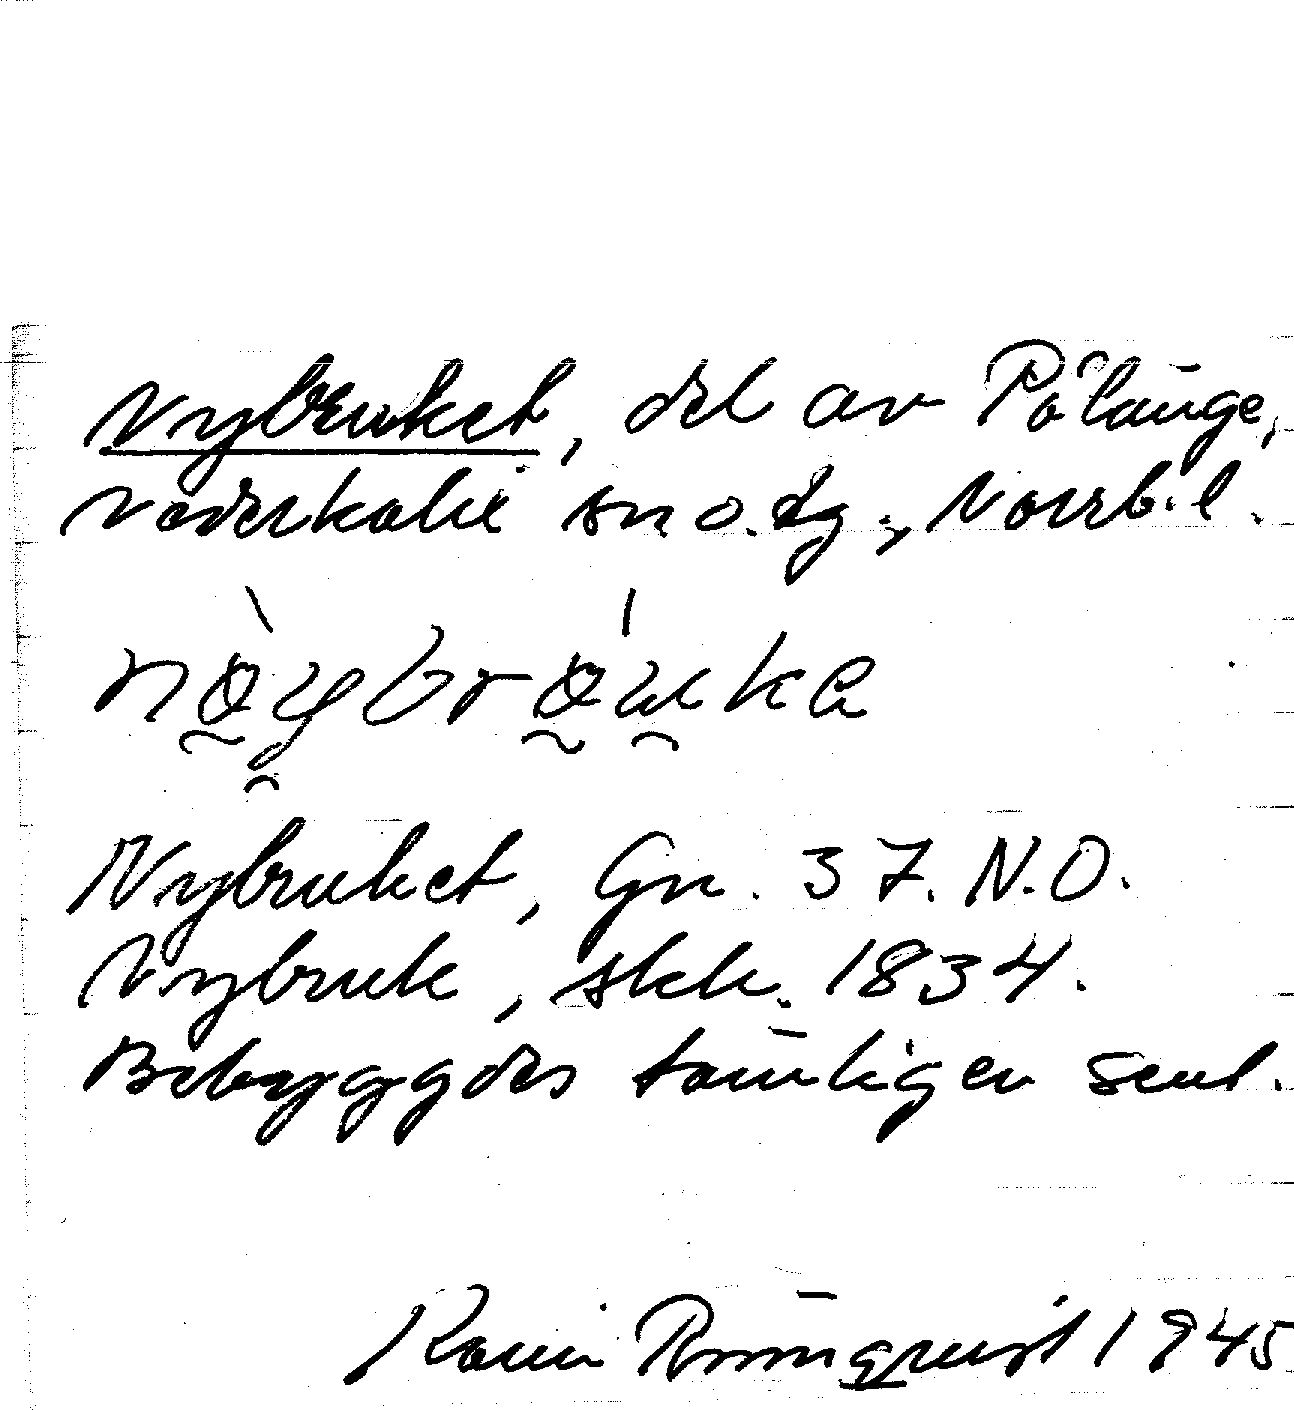 Nybruket, del av Pålänge,
Nederkalix sn o. tg., Norrb. l.
nø̀ybrø̀uke
Nybruket, Gn. 37. N.O.
Nybruk, skk. 1834.
Bebyggdes tämligen sent.
Karin Rönnquist 1945